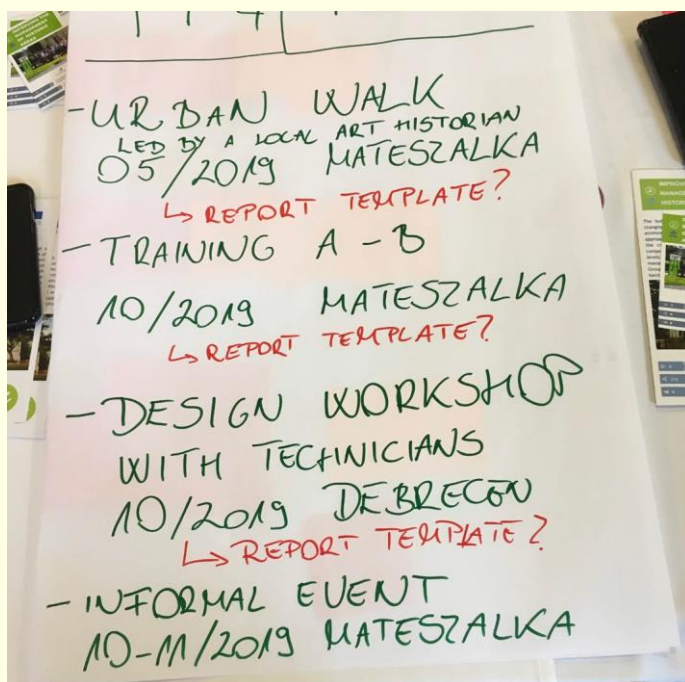 - URBAN WALK
LED BY A LOCAL ART HISTORIAN
05/2019 MATESZALKA
↳ REPORT TEMPLATE?
- TRAINING A - B
10/2019 MATESZALKA
↳ REPORT TEMPLATE?
- DESIGN WORKSHOP
WITH TECHNICIANS
10/2019 DEBRECEN
↳ REPORT TEMPLATE?
- INFORMAL EVENT
10-11/2019 MATESZALKA